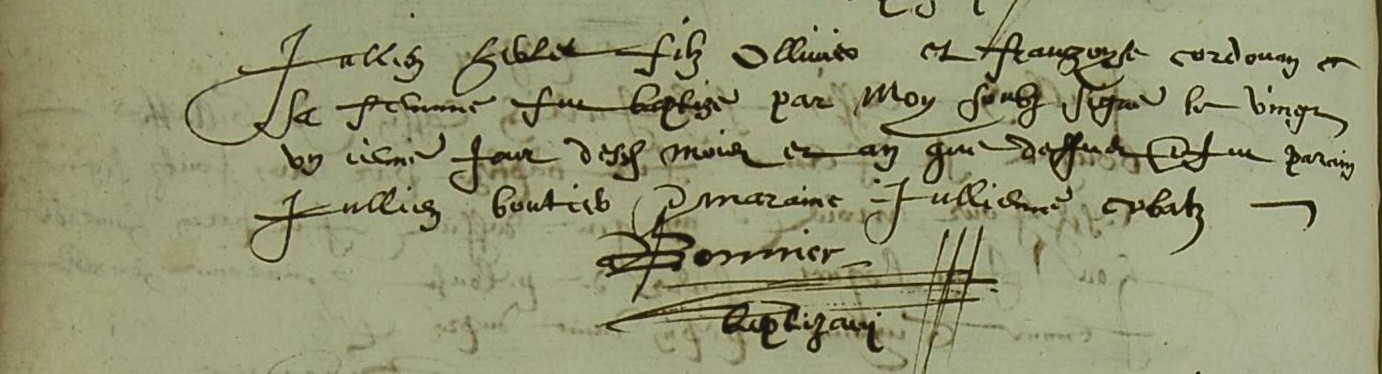 Jullien filz Ollivier et Franczoyse Cordouan
sa femme fut baptizé par moy soubz signé le vingt
un iesme jour desd mois et an que dessus et fut parain
Jullien boutier et maraine Jullienne
Bonnier
baptizavi